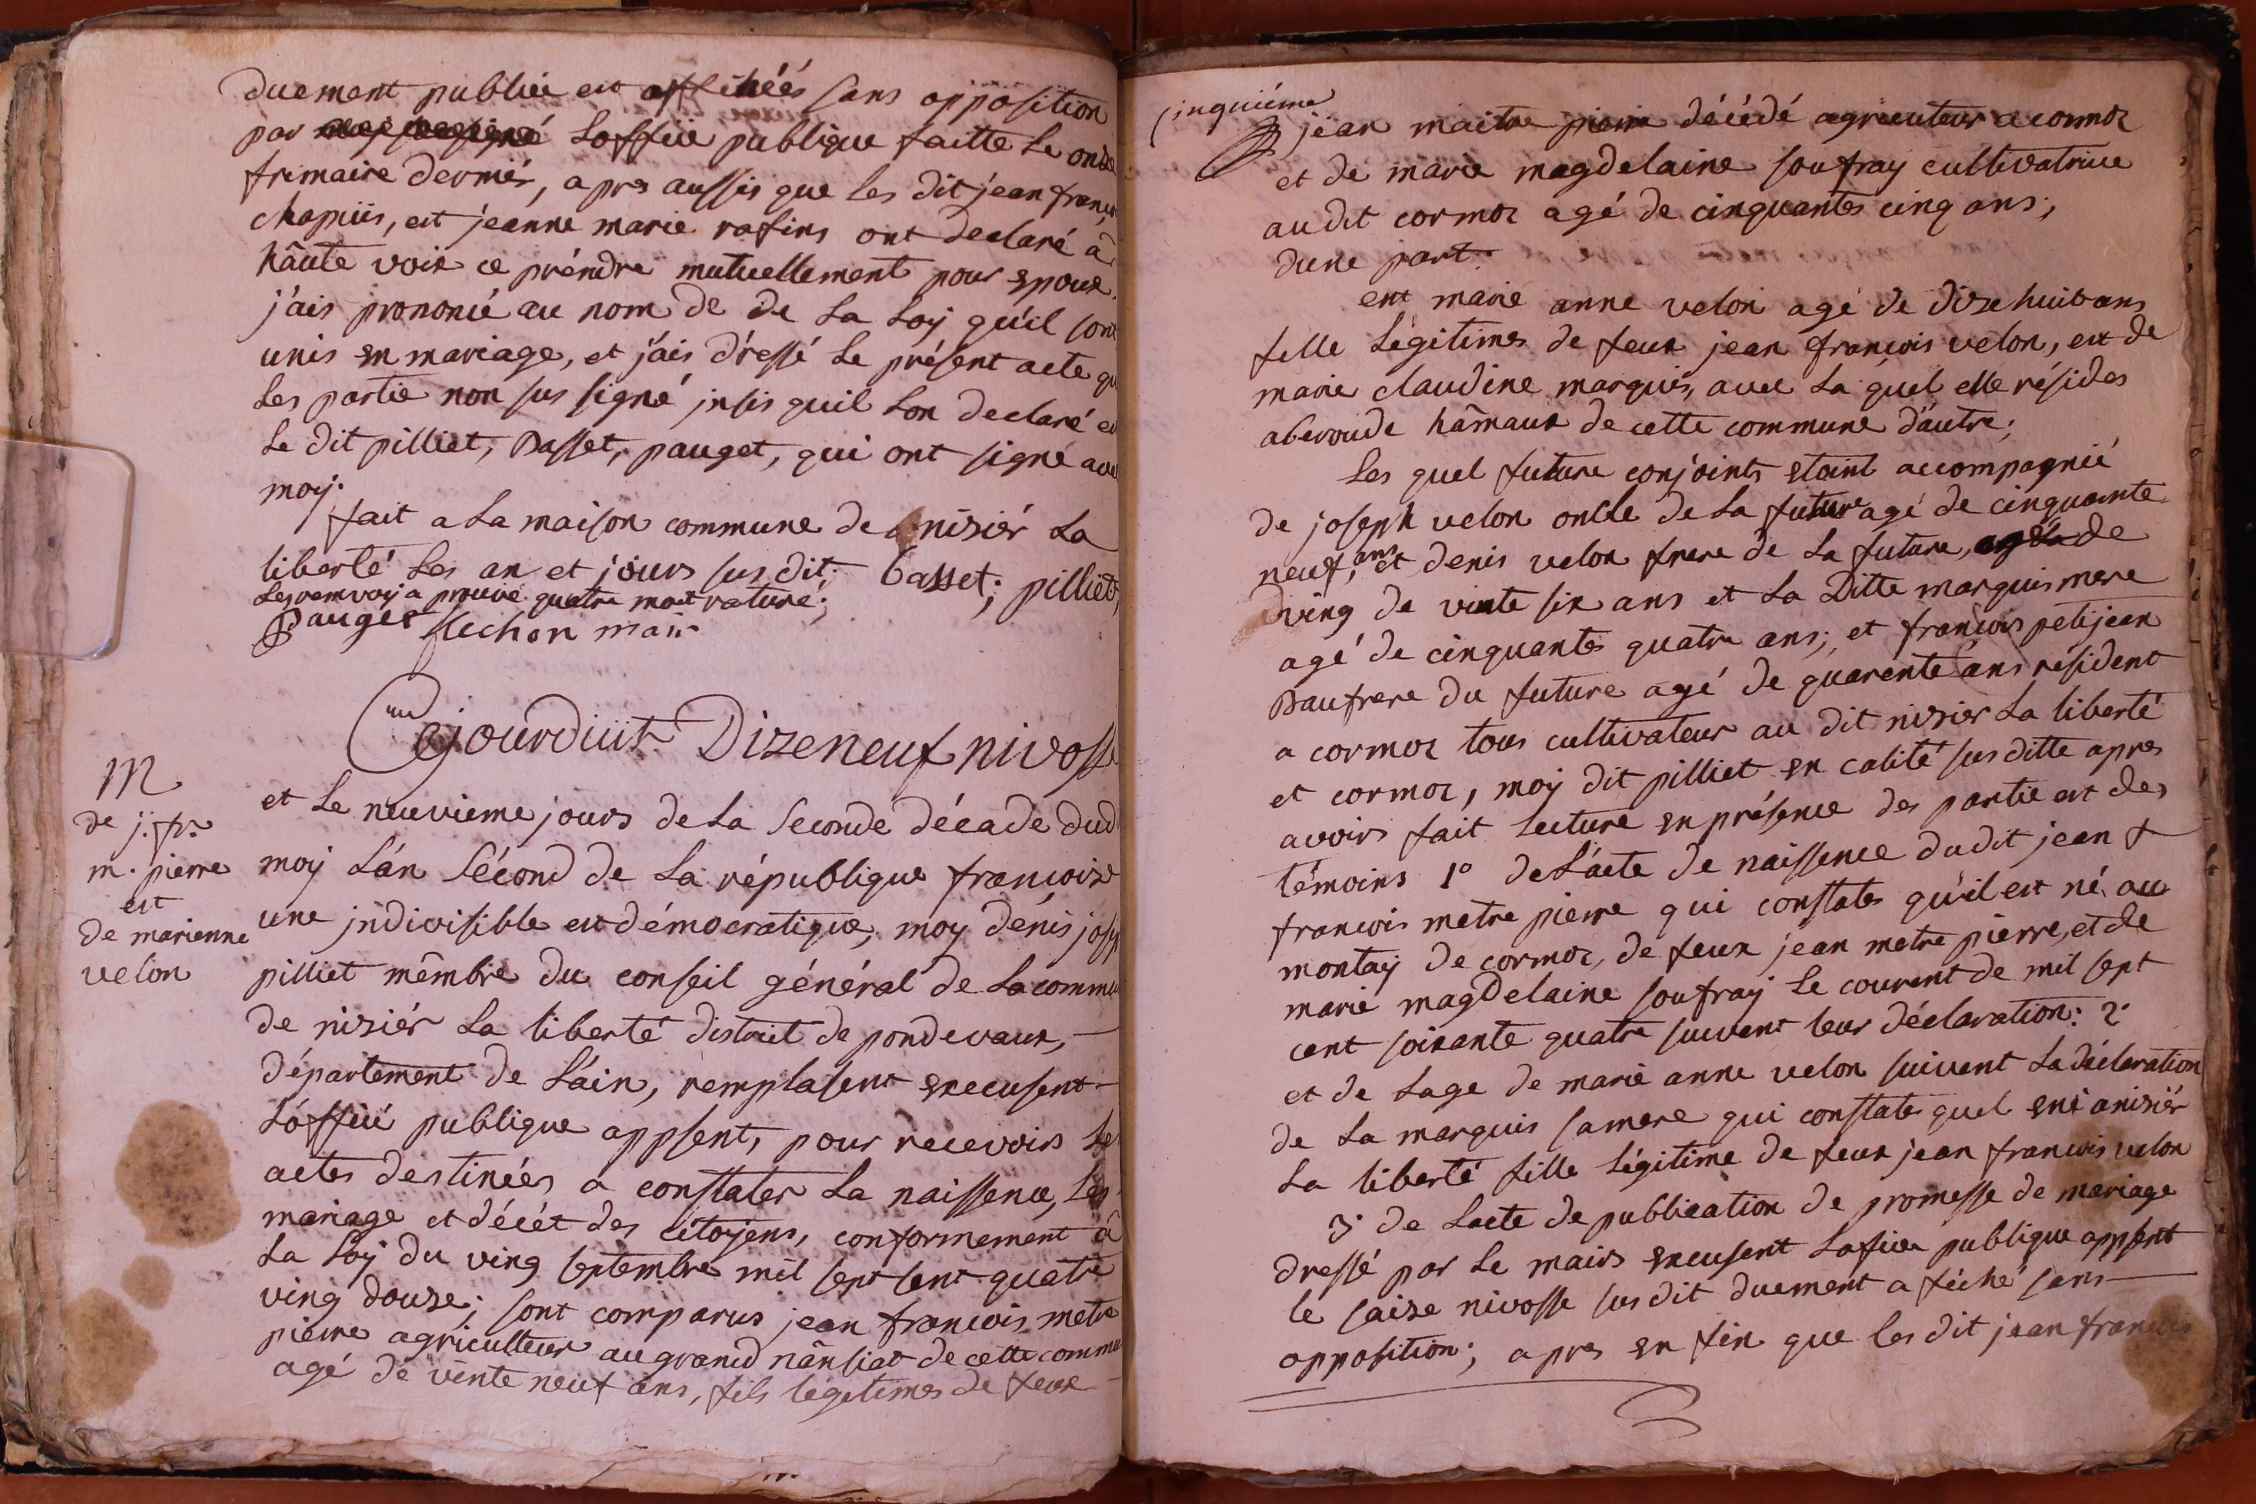 duement publiée est affichéés sans opposition
par soffiié publique faitte le onze
frimaire dernier, apres aussis que les dit jean franç
chapuiis, est jeanne marie rafins ont declaré à
hâute voix ce préndre mutuellement pour epoux.
j'ais prononcé au nom de de La Loy qu'il sont
unis en mariage, et j'ais dréssé Le présent acte que
Les partie non sus signé jnsis quil Lon declaré et
Le dit pilliet, Basset, pauget, qui ont signé avec
moy.
fait a La maison commune de nisiér La
liberté Les an et jours sus dit; basset; pilliet,
Les renvoy a prouvé quatre mot rature;
Pauget flechon mair
M
de j: fr:
m. pierre
est
de marienne
velon
Cejourdiiit Dizeneuf nivosse
et Le neuvieme jours de La Seconde décade dud
moy Lán Sécond de La république francoise
une jndivisible est démocratique, moy dénis josep
pilliet mêmbre du conseil général de La commu
de nisiér La liberté district de pondevaux,
département de Láin, remplasent execusent
Lóffiié publique appsent, pour recevoirs Les
actes destinées a constater La naissence, Les
mariage et décét des citoyens, conformement à
La Loy du ving septembre mil sept sent quatre
ving douze; sont comparus jean francois metre
pierre agriculteur au grand nânsiat de cette commu
agé de vente neuf ans, fils légitimes de feux
cinquiéme
jean maitre pierre décédé agriculteur a cormoz
et de marie magdelaine soufray cultivatrice
au dit cormoz agé de cinquantes cinq ans,
dune part.
ent marie anne velon agé de dixe huit ans
fille Légitimes de feux jean françois velon, est de
marie claudine marquis, avec La quel elle résides
aberoude hâmaux de cette commune d'autre;
Les quel future conjoints etoint accompagnié
de joseph velon oncle de La future agé de cinquante
neuf, ans et denis velon frere de La future, de
ving de vinte six ans et La Ditte marquis mere
agé de cinquantes quatre ans; et francois petijean
Baufrere du future agé de quarente ans résident
a cormoz tous cultivateur au dit nizier La liberté
et cormoz, moy dit pilliet en calité sus ditte apres
avoirs fait Lecture en présence des partie est des
témoins 1º de L'acte de naissence dudit jean &
francois metre pierre qui constates qu'il est né au
montay de cormoz, de feux jéan metre pierre, et de
marie magdelaine soufray Le courent de mil sept
cent soixante quatre suivent leur déclaration: 2°
et de Lage de marie anne velon suivent La déclaration
de La marquis samere qui constate quel ent anisiér
La liberté fille Légitime de feux jean francois velon
3° de Lacte de publication de promesse de mariage
dressé par Le mairs execusent Lofiier publique appsent
le saize nivosse sus dit duement a fiché sans
opposition; apres en fin que les dit jean francois